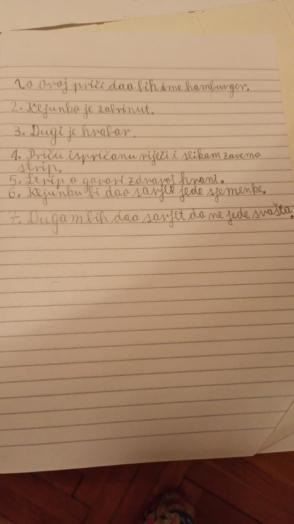 1. o ovoj priči dao bih ime hamburger.
2. Kljunko je zabrinut.
3. Dugi je hrabar.
4. Priču ispričanu riječi i slikom zovemo
strip.
5. Strip o govori zdravoj hrani.
6. Kljunku bi dao savjet jede sjemenke.
7. Dugom bih dao savjet da ne jede svašta.